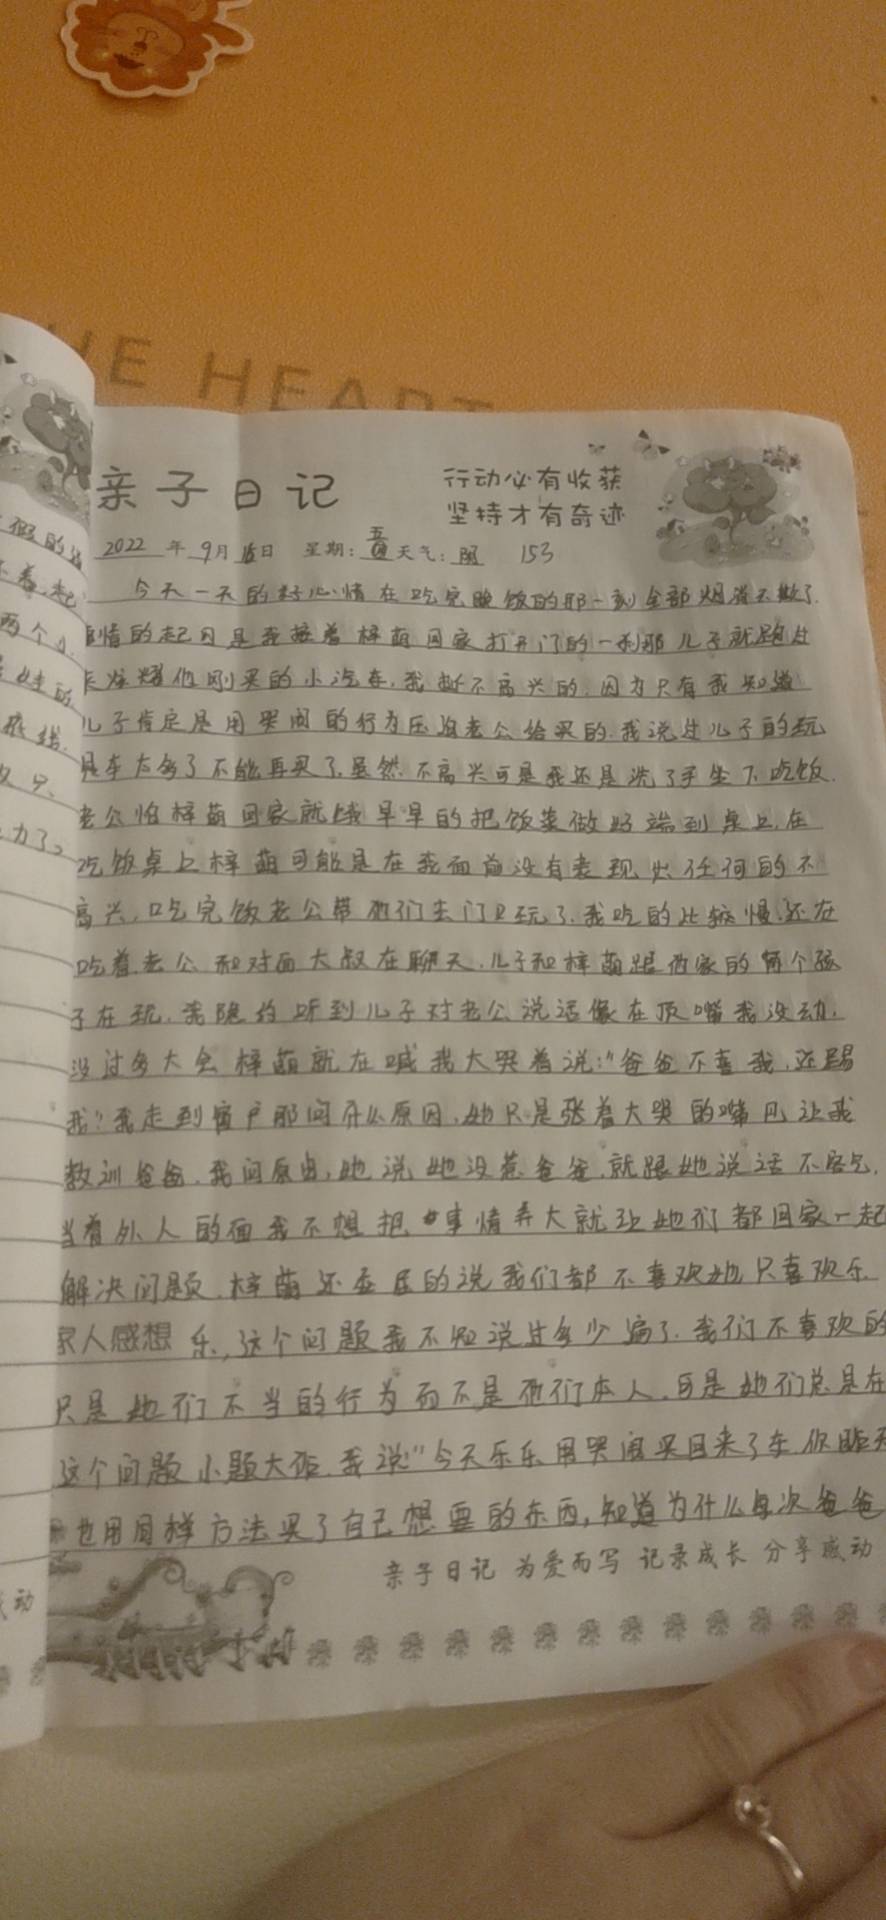 THE HEART
亲子日记
行动必有收获
坚持才有奇迹
2022年9月16日 星期:五 天气:阴 153
今天一天的好心情在吃完晚饭的那一刻全部烟消云散了.
事情的起因是我接着梓萌回家打开门的一刹那儿子就跑过
来炫耀他刚买的小汽车,我挺不高兴的,因为只有我知道
儿子肯定是用哭闹的行为压迫老公给买的.我说过儿子的玩
具车太多了不能再买了.虽然不高兴可是我还是洗了手坐下吃饭.
老公怕梓萌回家就饿早早的把饭菜做好端到桌上,在
吃饭桌上梓萌可能是在我面前没有表现出任何的不
高兴,吃完饭老公带他们去门口玩了.我吃的比较慢,还在
吃着老公和对面大叔在聊天,儿子和梓萌跟他家的两个孩
子在玩,我隐约听到儿子对老公说话像在顶嘴我没动,
没过多大会梓萌就在喊我大哭着说:"爸爸不喜我,还踢
我"我走到窗户那问什么原因,她只是张着大哭的嘴巴让我
教训爸爸.我问原由,她说她没惹爸爸,就跟她说话不客气,
当着外人的面我不想把事情弄大就让她们都回家一起
解决问题.梓萌还委屈的说我们都不喜欢她只喜欢乐
家人感想 乐,这个问题我不知说过多少遍了.我们不喜欢的
只是她们不当的行为而不是他们本人,可是她们总是在
这个问题小题大作.我说"今天乐乐用哭闹买回来了车,你昨天
也用同样方法买了自己想要的东西,知道为什么每次爸爸
亲子日记 为爱而写 记录成长 分享感动